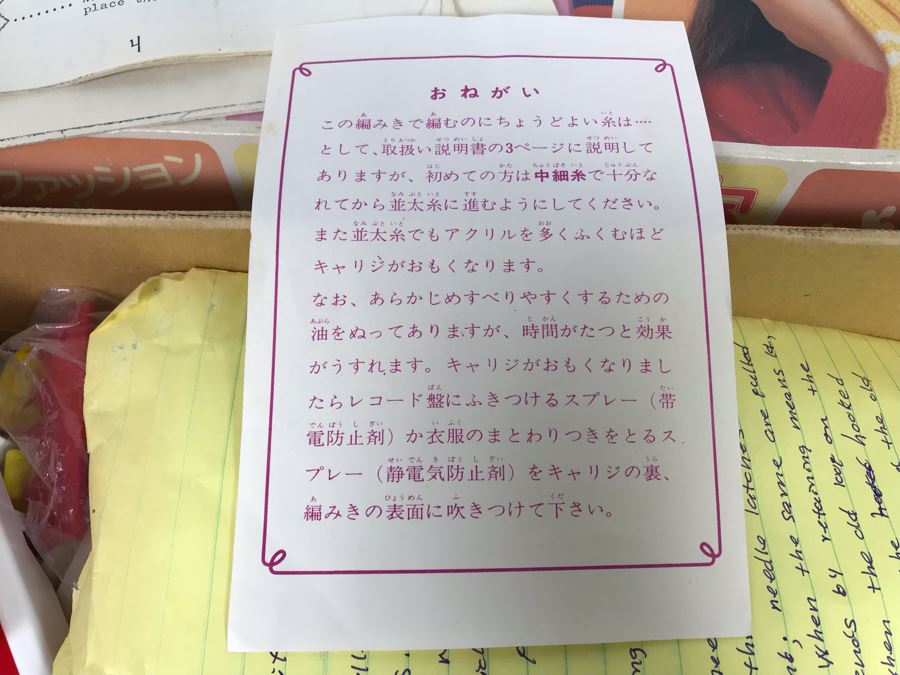 place th
4
ファッション
おねがい
この編みきで編むのにちょうどよい糸は‥‥
として、取扱い説明書の3ページに説明して
ありますが、初めての方は中細糸で十分な
れてから並太糸に進むようにしてください。
また並太糸でもアクリルを多くふくむほど
キャリジがおもくなります。
なお、あらかじめすべりやすくするための
油をぬってありますが、時間がたつと効果
がうすれます。キャリジがおもくなりまし
たらレコード盤にふきつけるスプレー（帯
電防止剤）か衣服のまとわりつきをとるス
プレー（静電気防止剤）をキャリジの裏、
編みきの表面に吹きつけて下さい。
needle latches are pulled
the same means
when returning on
by the old loop hooked
the old